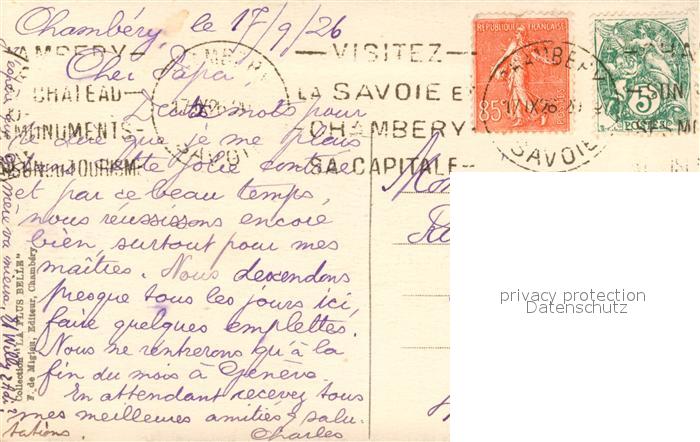 Chambéry, le 17/9/26
Cher Papa,
Deux mots pour
dire que je me plais
dans cette jolie contrée
et par ce beau temps,
nous réussissons encore
bien, surtout pour mes
maîtres. Nous descendons
presque tous les jours ici,
faire quelques emplettes.
Nous ne rentrerons qu'à la
fin du mois à Genève.
En attendant recevez tous
mes meilleures amitiés & salu-
tations. Charles
mère va mieux. Willy
Collection "LA PLUS BELLE"
F. de Miglen, Editeur, Chambéry
CHAMBERY
CHATEAU
MONUMENTS
TOURISME
CHAMBERY
17 IX 26
SAVOIE
VISITEZ
LA SAVOIE ET
CHAMBERY
SA CAPITALE
REPUBLIQUE FRANÇAISE
85c
CHAMBERY
17 IX 26
SAVOIE
5c
POSTES
SON
SES M
privacy protection
Datenschutz